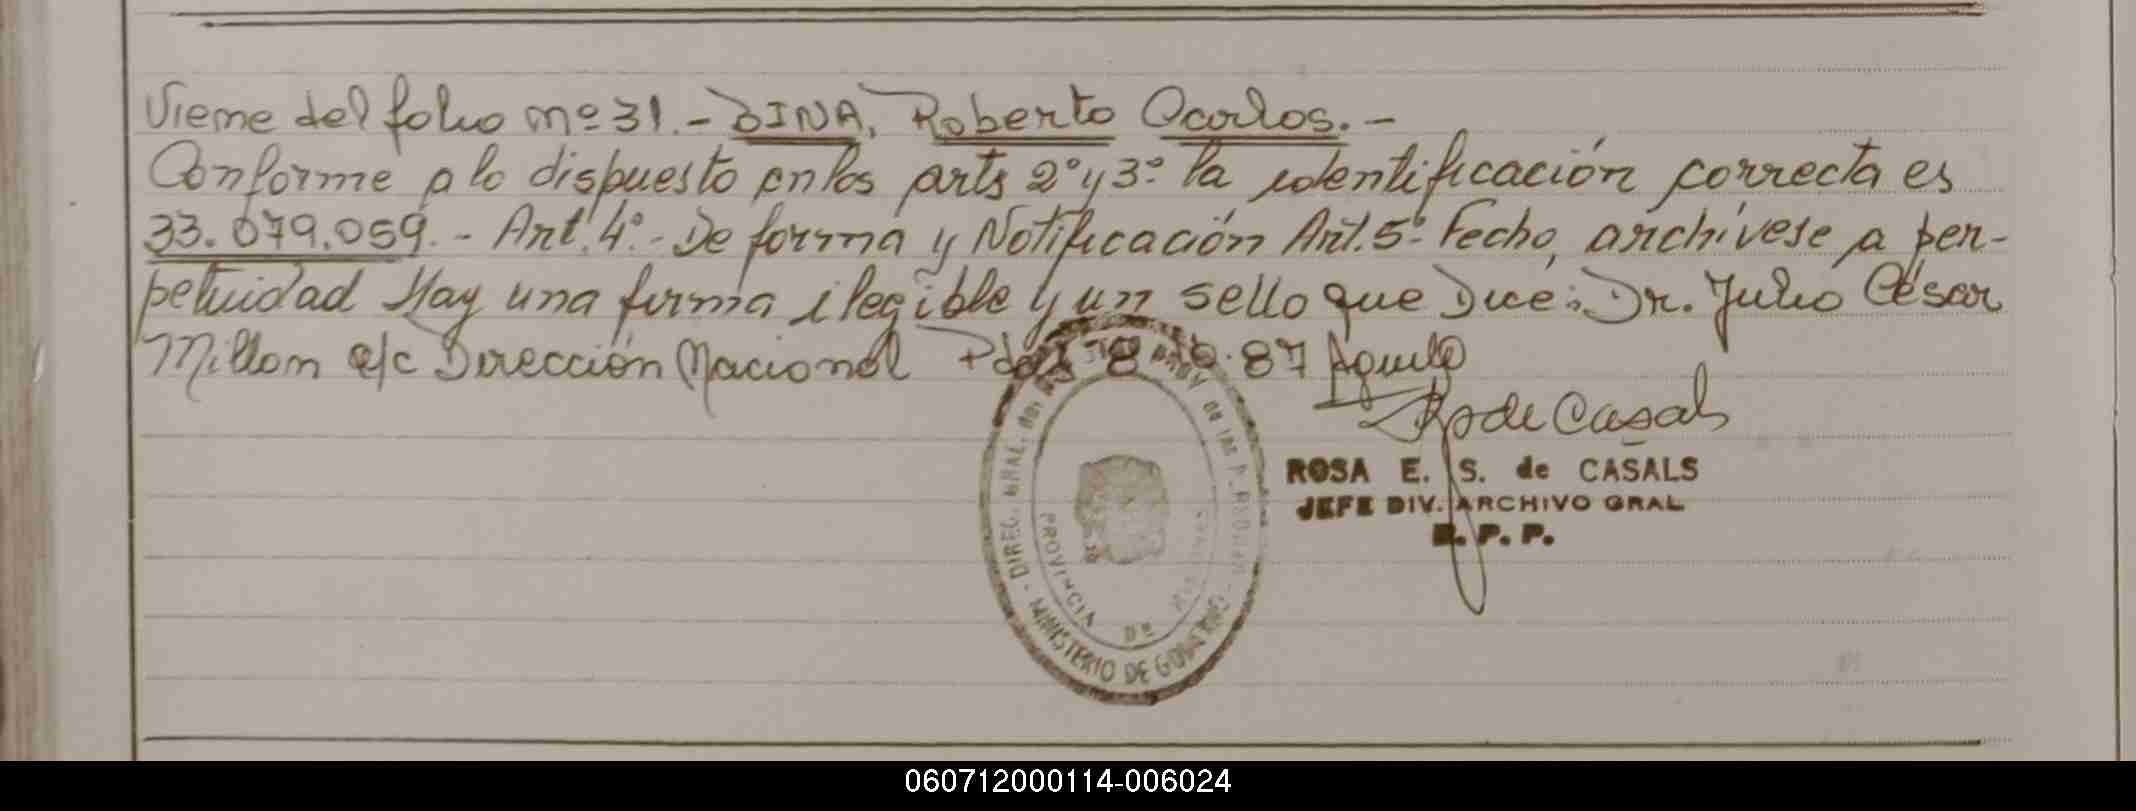 Viene del folio nº 31.- DINA, Roberto Carlos.-
Conforme a lo dispuesto en los arts 2º y 3º la identificación correcta es
33.079.059.- Art. 4º.- De forma y Notificación Art. 5º Fecho, archívese a per-
petuidad Hay una firma ilegible y un sello que Dice: Dr. Julio César
Millon a/c Dirección Nacional 8 87
Ro de Casals
ROSA E. S. de CASALS
JEFE DIV. ARCHIVO GRAL
R. P. P.
DIREC. GRAL. de las
MINISTERIO DE GOBIERNO
PROVINCIA DE
060712000114-006024